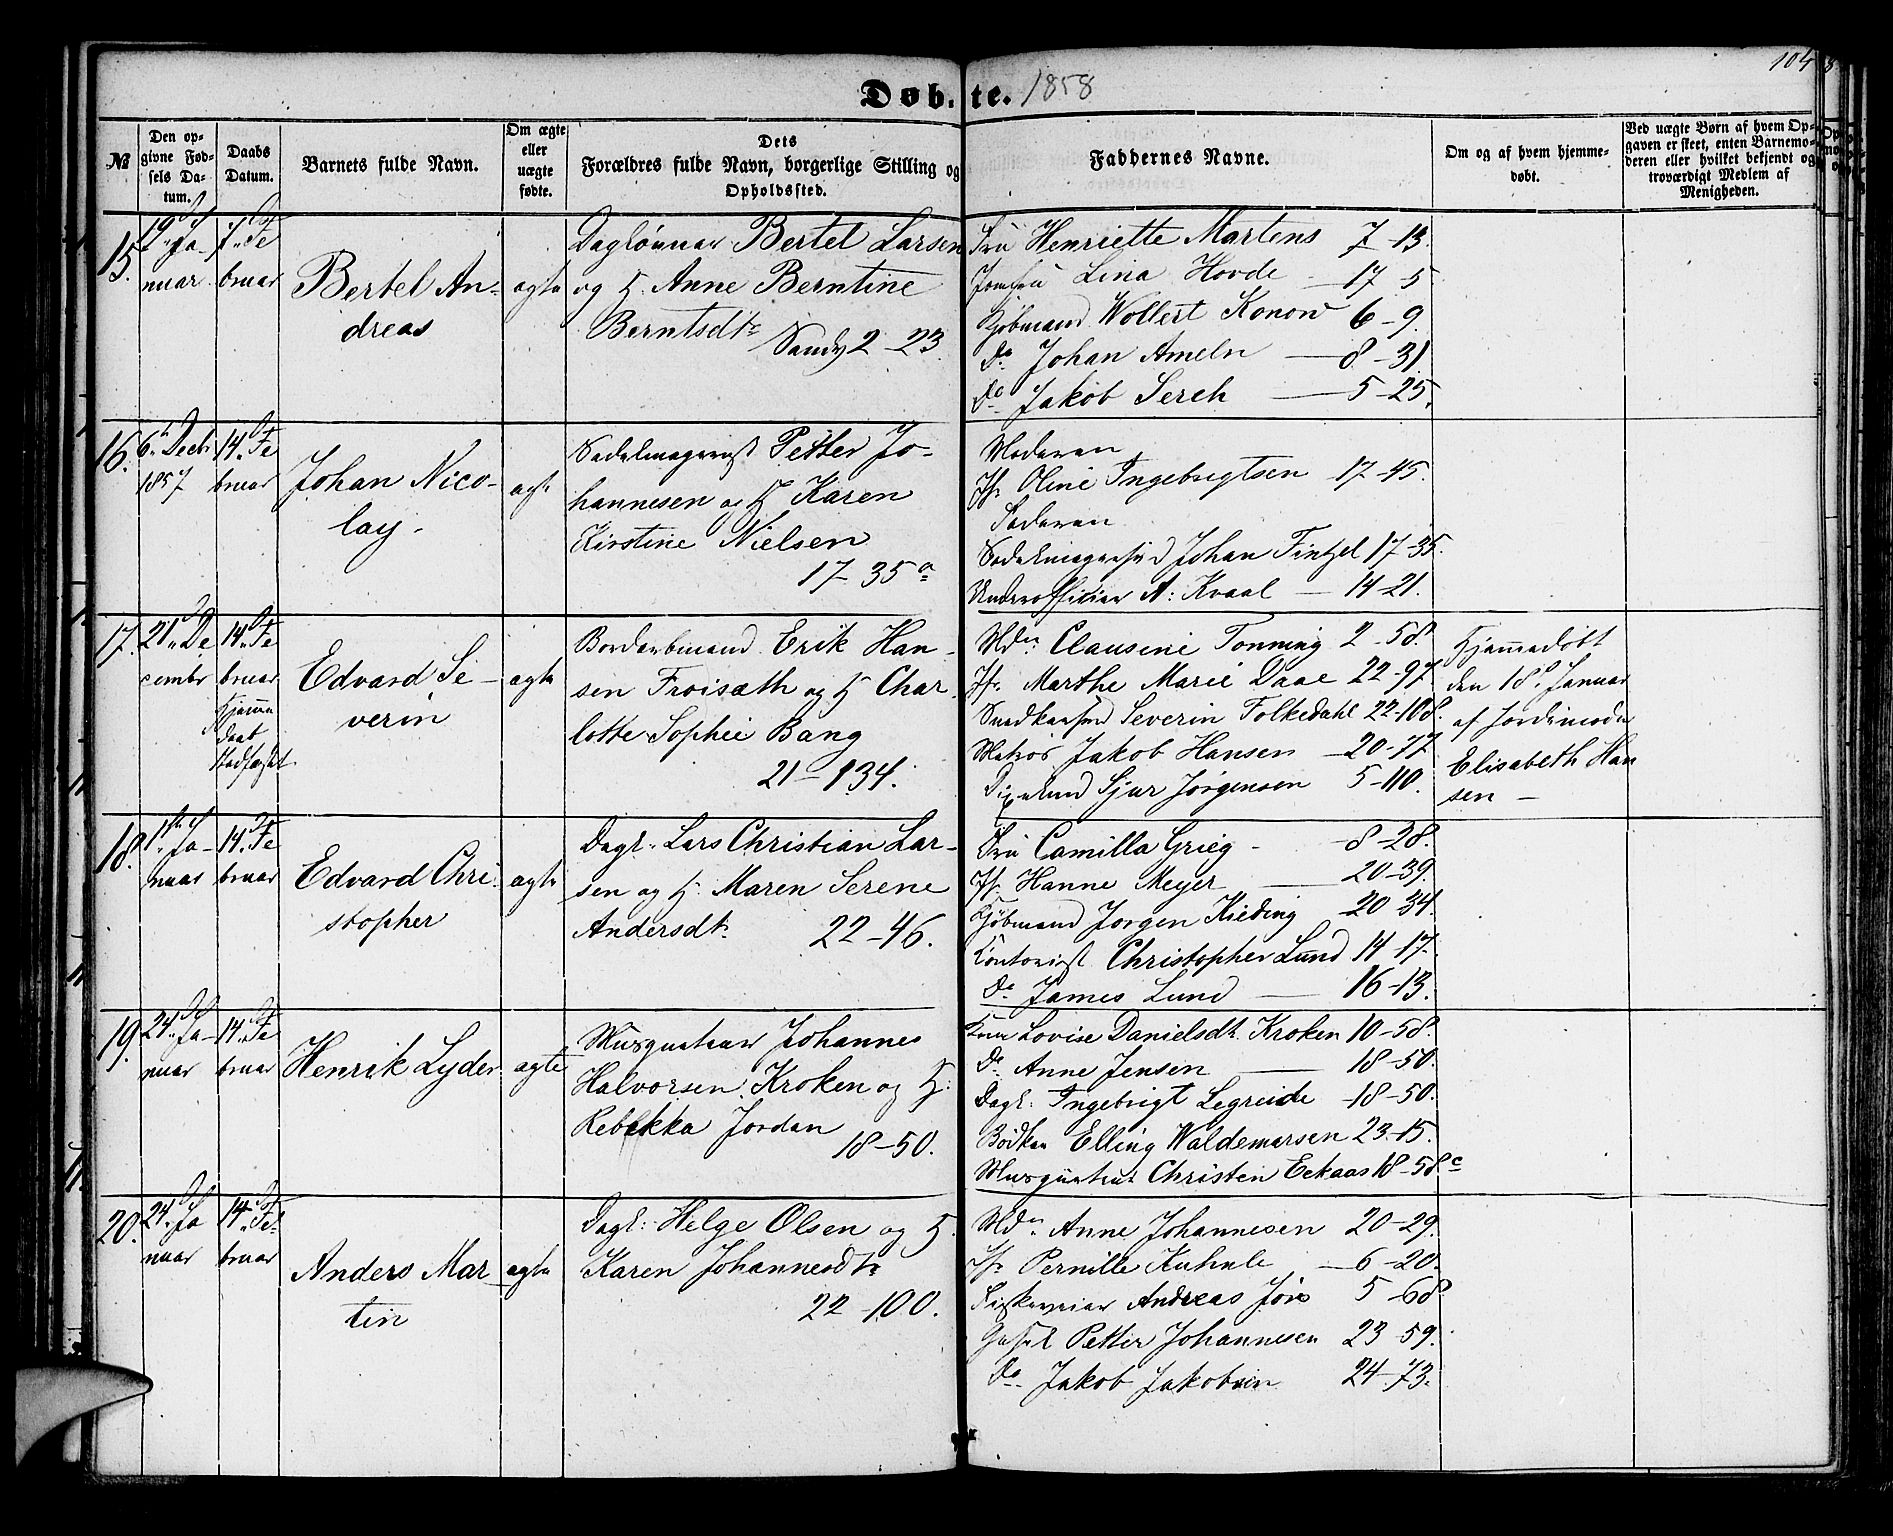 104
Døbte. 1858
№
Den opgivne Fødsels Datum.
Daabs Datum.
Barnets fulde Navn.
Om ægte eller uægte fødte.
Dets Forældres fulde Navn, borgerlige Stilling og Opholdssted.
Faddernes Navne.
Om og af hvem hjemmedøbt.
Ved uægte Børn af hvem Opgaven er skeet, enten Barnemoderen eller hvilket bekjendt og troværdigt Medlem af Menigheden.
15.
19 Ja-
nuar
7 Fe
bruar
Bertel An-
dreas
ægte
Daglønner Bertel Larsen
og H. Anne Berntine
Berntsdtr
2 - 23
Fru Henriette Martens 7-13.
Jomfru Lina Hovde - 17-5
Kjøbmand Wollert Konow 6-9.
Do Johan Ameln - 8-31
Do Jakob Serch - 5-25.
16.
6 Decbr
1857
14. Fe
bruar
Johan Nico-
lay.
ægte
Sadelmagersv Petter Jo-
hannesen og H. Karen
Kirstine Nielsen
17-35 a
Moderen
Jfr Oline Ingebrigtsen 17-45.
Faderen
Sadelmagersvd Johan Fintzel 17-35.
Underofficier A: Kvaal - 14-21.
17.
21. De
cembr
14. Fe
bruar
Hjemme
daab
stadfæstet
Edvard Se-
verin
ægte
Erik Han-
sen Froisæth og H. Char-
lotte Sophie Bang
21-134.
Md: Clausine Tonning 2-58.
Jfr. Marthe Marie Daae 22-97.
Severin Folkedahl 22-108.
Matros Jakob Hansen - 20-77
Sjur Jørgensen 5-110.
Hjemmedøbt
den 18. Januar
af Jordemoder
Elisabeth Han
sen -
18.
1ste Ja-
nuar
14. Fe
bruar
Edvard Chri-
stopher
ægte
Dagl. Lars Christian Lar-
sen og H. Maren Serene
Andersdtr. 22-46.
Fru Camilla Grieg - 8-28.
Jfr. Hanne Meyer - 20-39.
Kjøbmand Jørgen Kieding 20-34.
Kontorist Christopher Lund 14-17.
Do James Lund - 16-13.
19.
24. Ja-
nuar
14. Fe
bruar
Henrik Lyder
ægte
Musqueteer Johannes
Halvorsen Kroken og H:
Rebekka Jordan
18-50.
Kone Lovise Danielsdtr. Kroken 10-58.
Do Anne Jensen - 18-50.
Dagl: Ingebrigt Legreide 18-50.
Bødker Elling Waldemarsen 23-15.
Musqueteer Christen Eekaas 18-58 c
20.
24. Ja
nuar
14. Fe-
bruar
Anders Mar
tin
ægte
Dagl: Helge Olsen og H.
Karen Johannesdtr
22-100.
Md. Anne Johannesen 20-29.
Jfr Pernille Kuhnle - 6-20.
Andreas 5-68
Petter Johannesen 23-59.
Do Jakob Jakobsen 24-73.